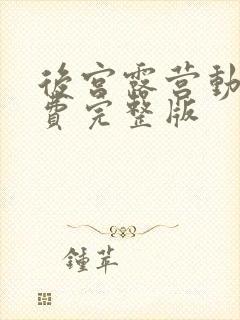 後宮露营動
費完整版
鍾苹